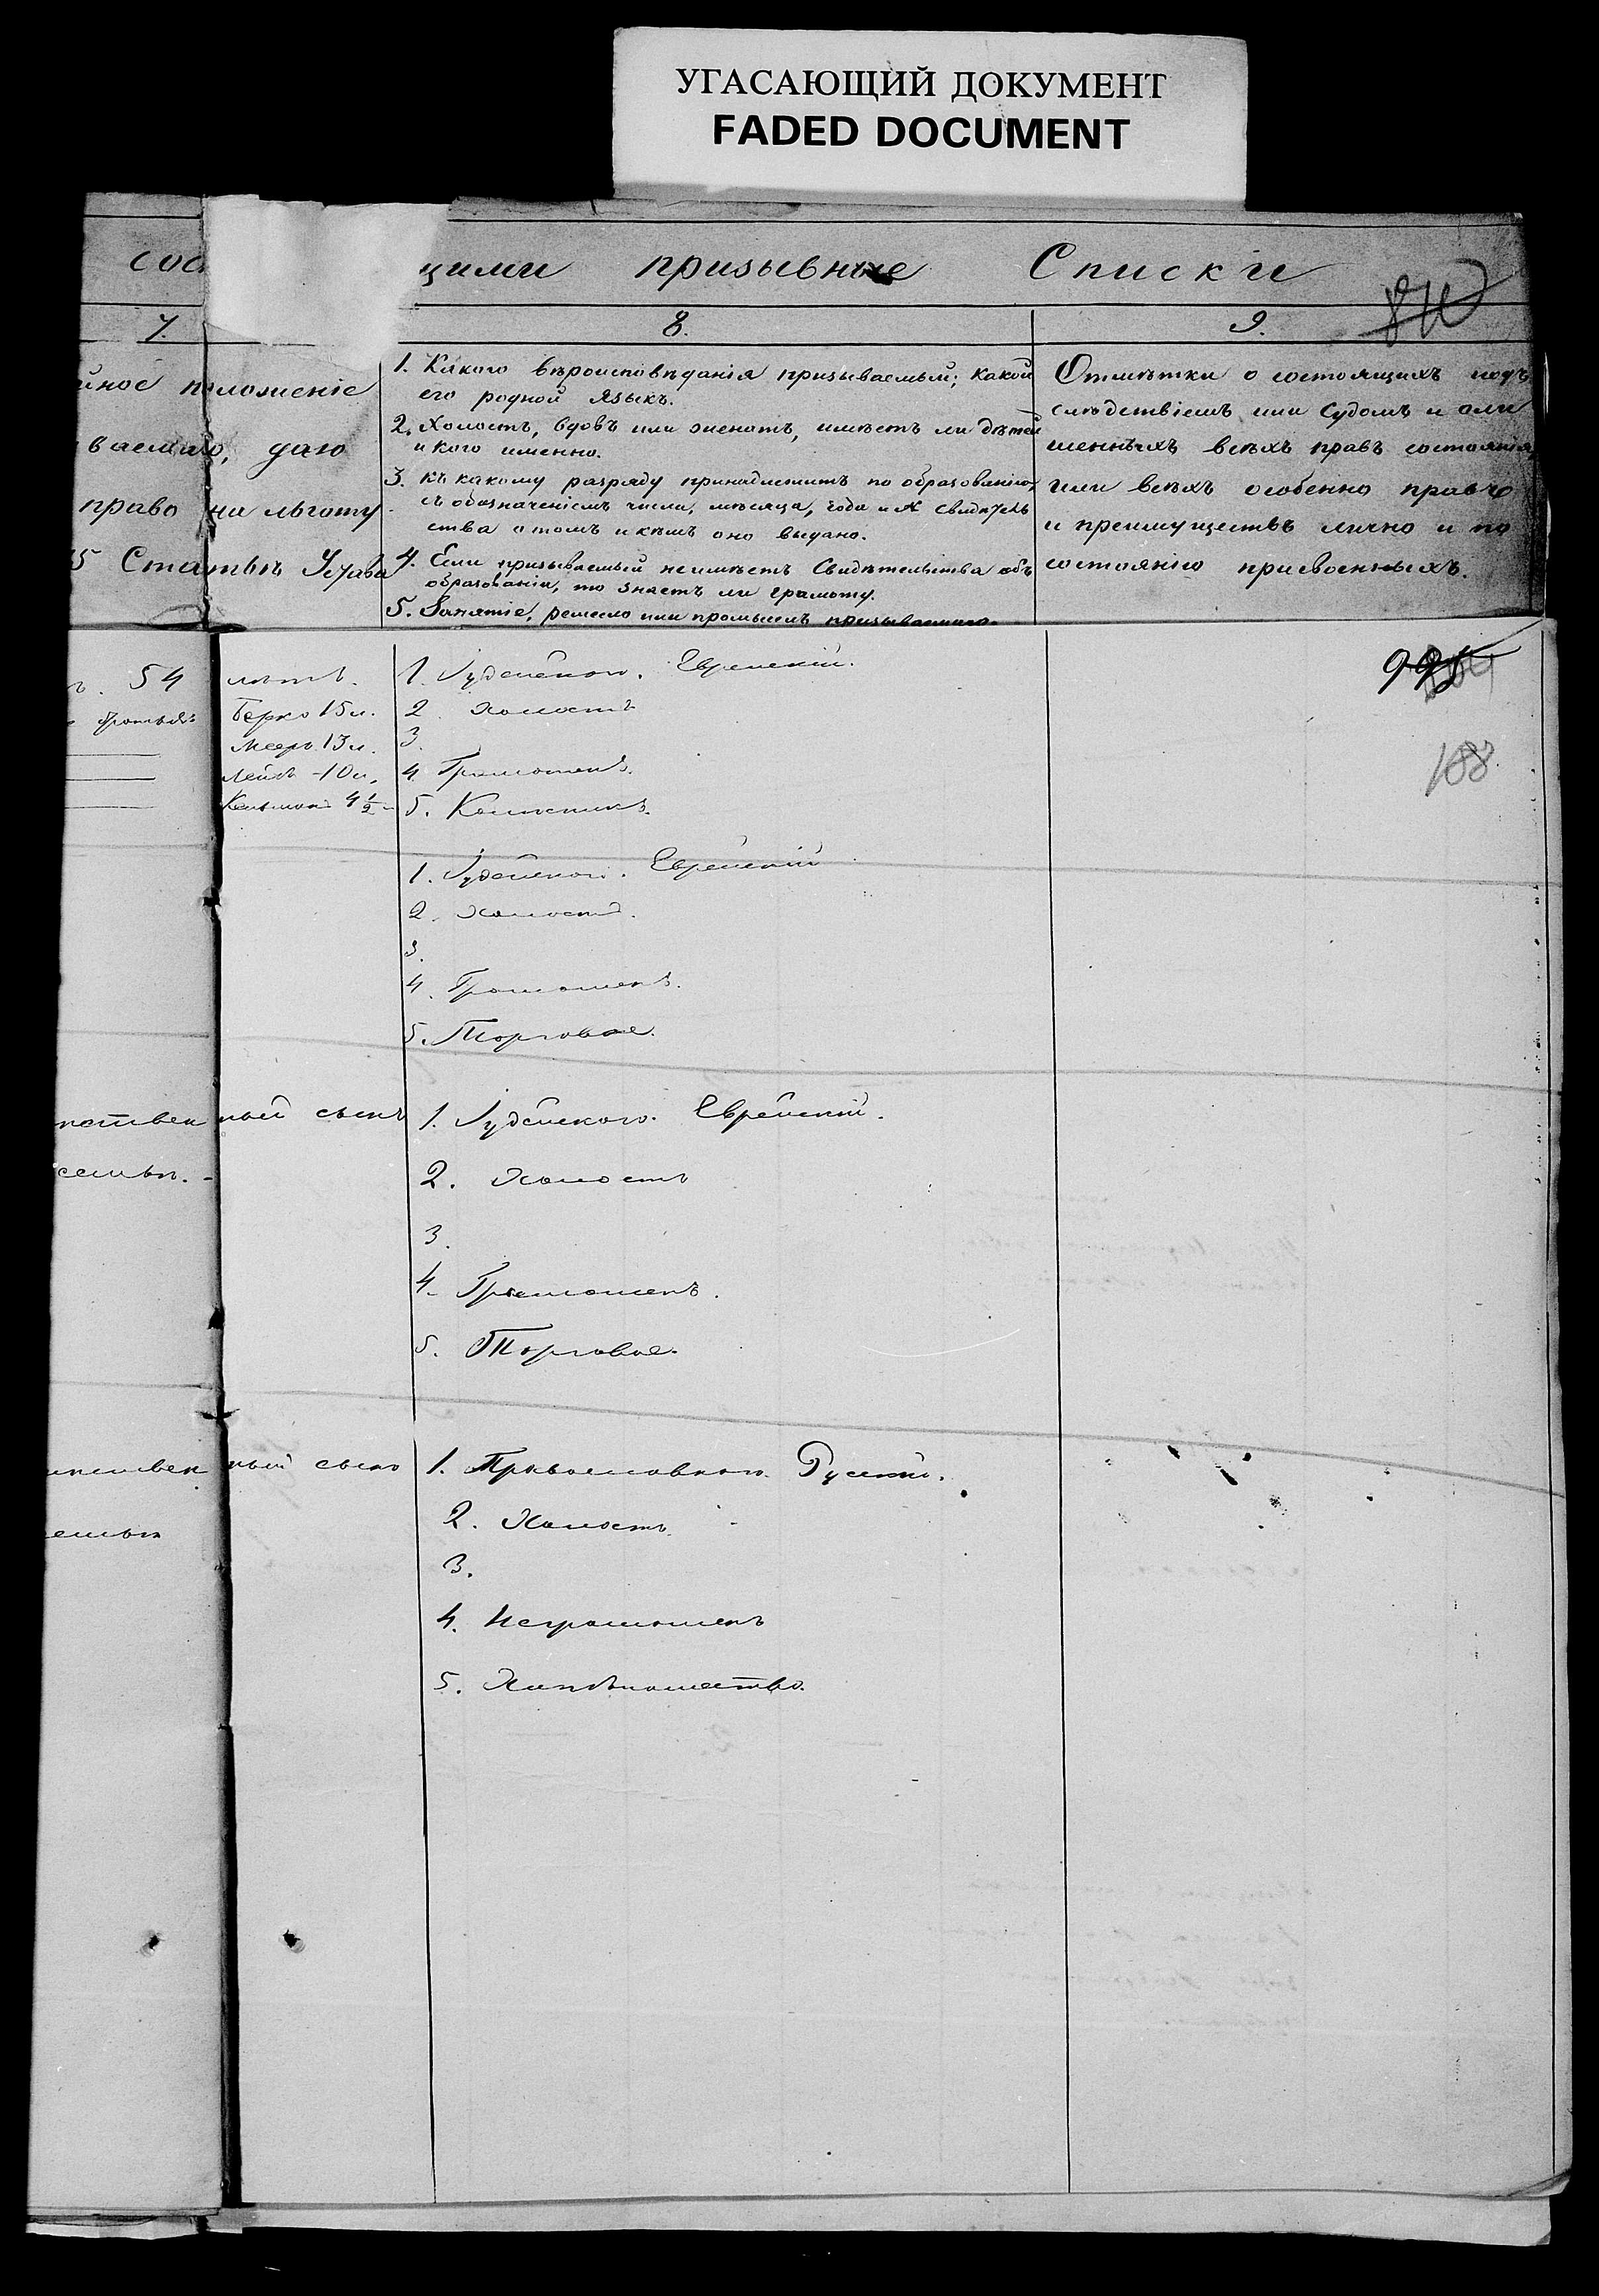 УГАСАЮЩИЙ ДОКУМЕНТ
FADED DOCUMENT
щими призывные Списки
7.
8.
9.
положеніе
даю
право на льготу
Статьѣ Устава
1. Какого вѣроисповѣданія призываемый; какой
его родной языкъ.
2. Холостъ, вдовъ или женатъ, имѣетъ ли дѣтей
и кого именно.
3. Къ какому разряду принадлежитъ по образованію,
съ обозначеніемъ числа, мѣсяца, года и № свидѣтель
ства о томъ и кѣмъ оно выдано.
4. Если призываемый неимѣетъ Свидѣтельства объ
образованіи, то знаетъ ли грамоту.
5. Занятіе, ремесло или промыселъ призываемаго.
Отмѣтки о состоящихъ подъ
слѣдствіемъ или Судомъ и ли
шенныхъ всѣхъ правъ состоянія
или всѣхъ особенно правъ
и преимуществъ лично и по
состоянію присвоенныхъ.
54 лѣтъ.
братья: Берко 15 л.
Мееръ 13 л.
Лейба - 10 л.
Кельманъ 4 1/2
1. Іудейского. Еврейскій.
2. Холостъ
3.
4. Грамотенъ.
5.
188
1. Іудейского. Еврейскій
2. Холостъ.
3.
4. Грамотенъ.
5. Торговое.
ный сынъ
семьѣ.
1. Іудейского. Еврейскій.
2. Холостъ
3.
4. Грамотенъ.
5. Торговое.
ный сынъ
1. Православного. Русскій.
2. Холостъ
3.
4. Неграмотенъ
5. Хлебопашество.